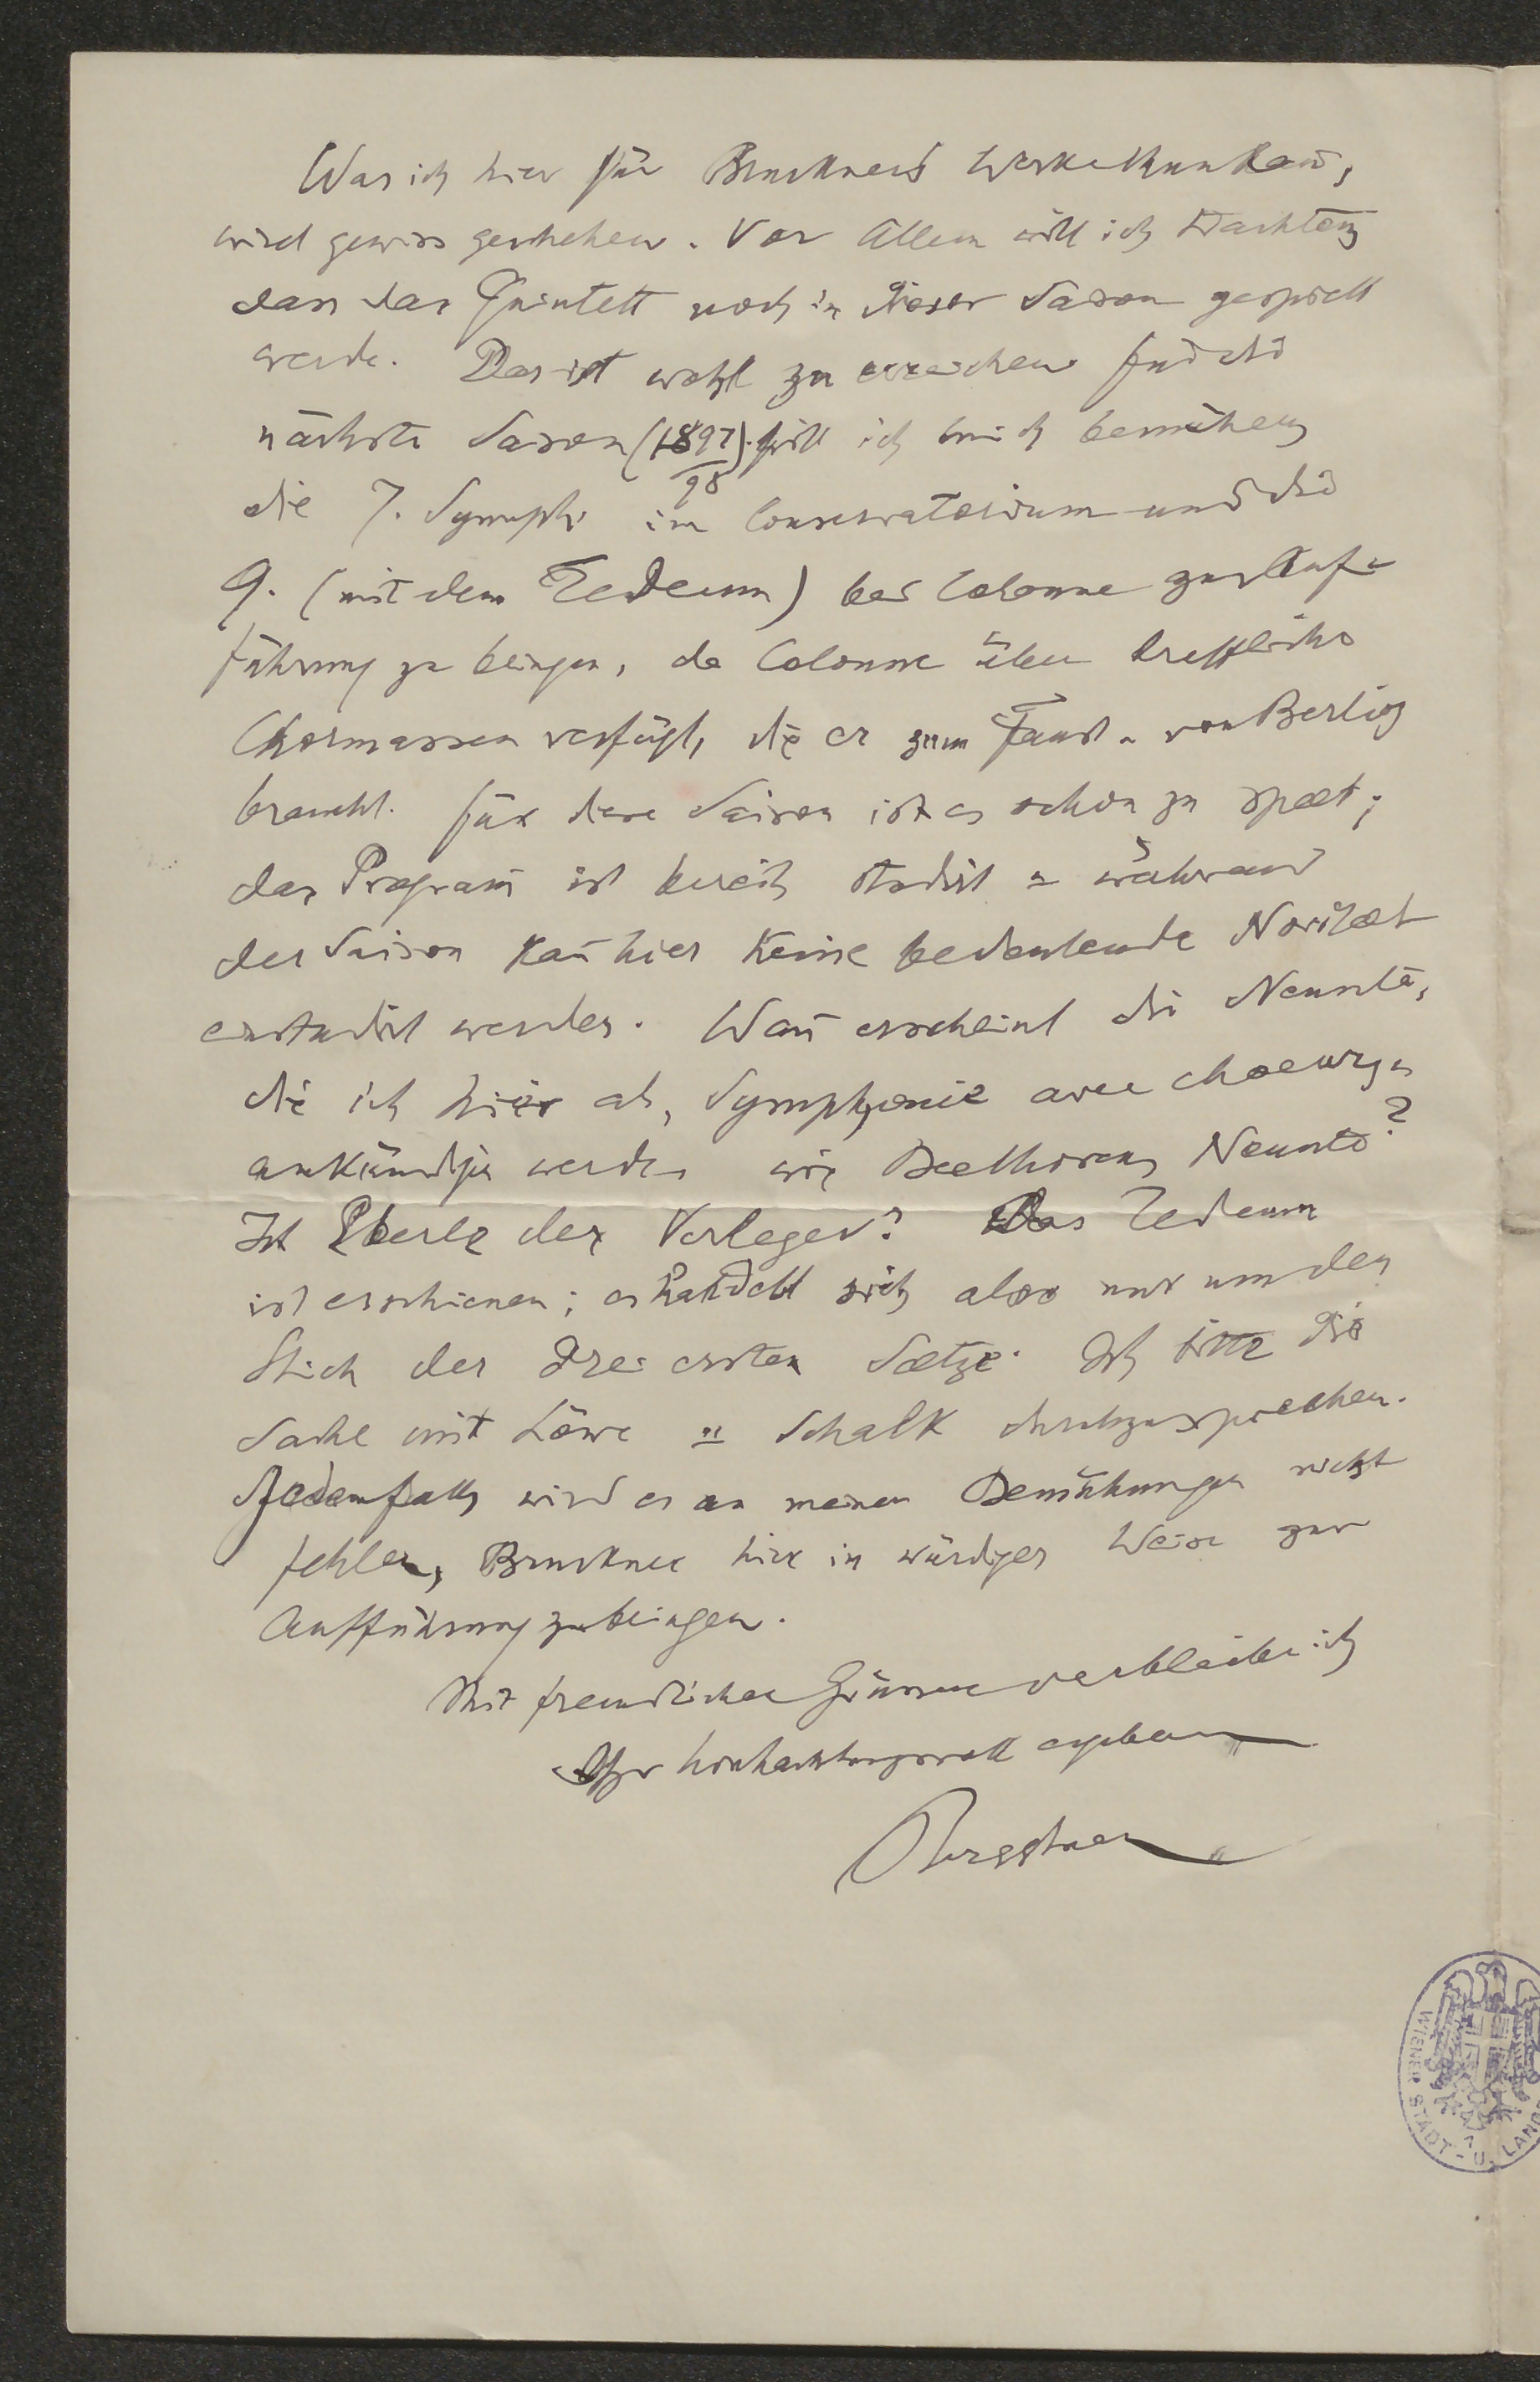 Was ich hier für Bruckners Werke thun kan̄,
wird gewiss geschehen. Vor Allem will ich trachten,
dass das Quintett noch in dieser Saison gespielt
werde. Das ist wohl zu erreichen für die
nächste Saison (1897/98) will ich mich bemühen,
die 7. Symph. im Conservatorium und die
9. (mit dem Tedeum) bei Colonne zur Auf-
führung zu bringen, da Colonne über treffliche
Chormassen verfügt, die er zum Faust v. von Berlioz
braucht. Für diese Saison ist es schon zu spaet;
das Program̄ ist bereits studirt u während
der Saison kan̄ hier keine bedeutende Novitaet
einstudirt werden. Wan̄ erscheint die Neunte,
die ich hier als „Symphonie avec choeurs“
ankündigen werde, wie Beethovens Neunte?
Ist Eberle der Verleger? Das Tedeum
ist erschienen; es handelt sich also nur um den
Stich der drei ersten Saetze. Ich bitte die
Sache mit Löwe u Schalk durchzusprechen.
Jedenfalls wird es an meinen Bemühungen nicht
fehlen, Bruckner hier in würdiger Weise zur
Aufführung zu bringen.
Mit freundlichen Grüssen verbleibe ich
Ihr hochachtungsvoll ergebener
WIENER STADT- U. LANDES